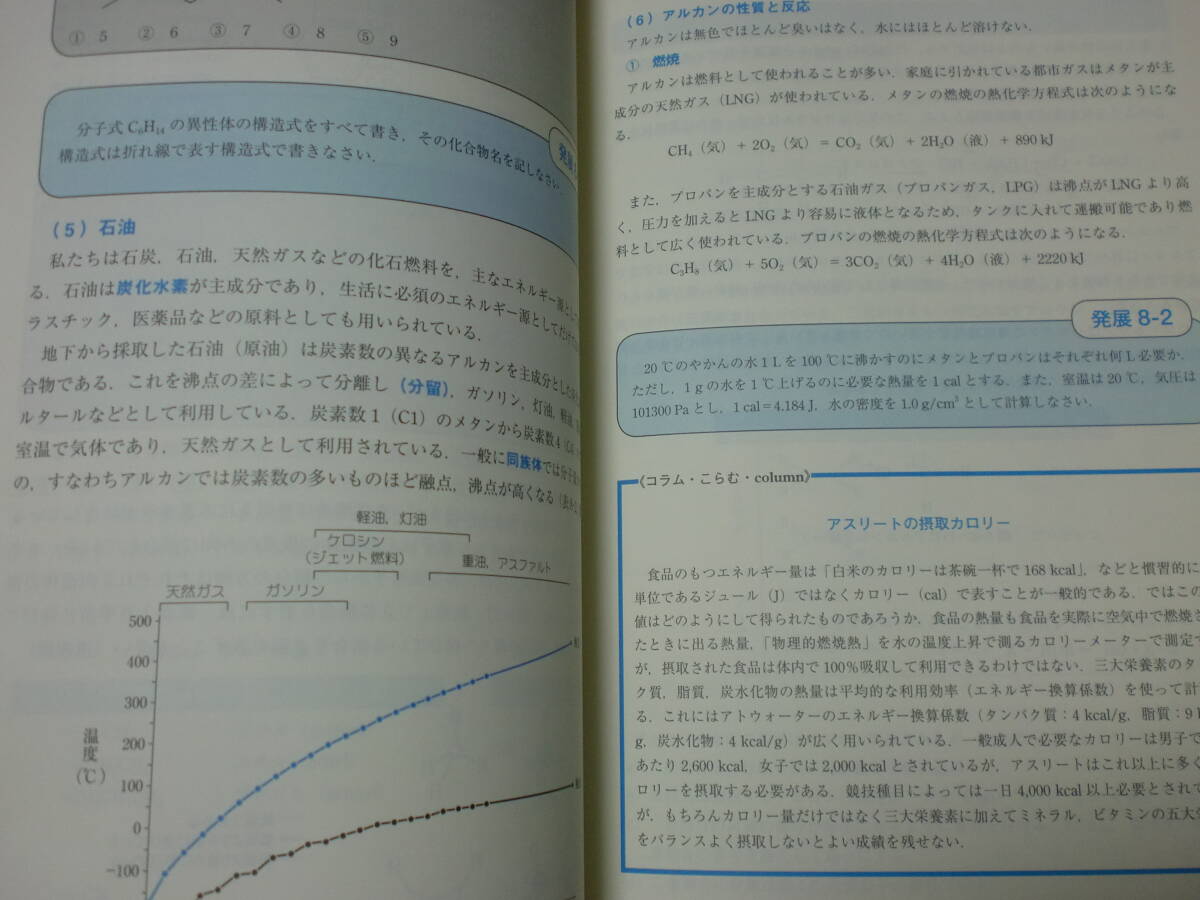 ① 5 ② 6 ③ 7 ④ 8 ⑤ 9
発展
分子式 C₆H₁₄ の異性体の構造式をすべて書き，その化合物名を記しなさい．
構造式は折れ線で表す構造式で書きなさい．
（5）石油
私たちは石炭，石油，天然ガスなどの化石燃料を，主なエネルギー源とし
る．石油は炭化水素が主成分であり，生活に必須のエネルギー源としてだけ
ラスチック，医薬品などの原料としても用いられている．
地下から採取した石油（原油）は炭素数の異なるアルカンを主成分とした
合物である．これを沸点の差によって分離し（分留），ガソリン，灯油，軽油，
ルタールなどとして利用している．炭素数 1（C1）のメタンから炭素数 4
室温で気体であり，天然ガスとして利用されている．一般に同族体では分子
の，すなわちアルカンでは炭素数の多いものほど融点，沸点が高くなる
軽油，灯油
ケロシン
（ジェット燃料）
重油，アスファルト
天然ガス ガソリン
500
400
300
200
100
0
−100
温度
（℃）
（6）アルカンの性質と反応
アルカンは無色でほとんど臭いはなく，水にはほとんど溶けない．
① 燃焼
アルカンは燃料として使われることが多い．家庭に引かれている都市ガスはメタンが主
成分の天然ガス（LNG）が使われている．メタンの燃焼の熱化学方程式は次のようにな
る．
CH₄（気）+ 2O₂（気）= CO₂（気）+ 2H₂O（液）+ 890 kJ
また，プロパンを主成分とする石油ガス（プロパンガス，LPG）は沸点が LNG より高
く，圧力を加えると LNG より容易に液体となるため，タンクに入れて運搬可能であり燃
料として広く使われている．プロパンの燃焼の熱化学方程式は次のようになる．
C₃H₈（気）+ 5O₂（気）= 3CO₂（気）+ 4H₂O（液）+ 2220 kJ
発展 8-2
20 ℃のやかんの水 1 L を 100 ℃に沸かすのにメタンとプロパンはそれぞれ何 L 必要か．
ただし，1 g の水を 1 ℃上げるのに必要な熱量を 1 cal とする．また，室温は 20 ℃，気圧は
101300 Pa とし，1 cal = 4.184 J，水の密度を 1.0 g/cm³ として計算しなさい．
《コラム・こらむ・column》
アスリートの摂取カロリー
食品のもつエネルギー量は「白米のカロリーは茶碗一杯で 168 kcal」，などと慣習的に
単位であるジュール（J）ではなくカロリー（cal）で表すことが一般的である．ではこの
値はどのようにして得られたものであろうか．食品の熱量も食品を実際に空気中で燃焼さ
たときに出る熱量，「物理的燃焼熱」を水の温度上昇で測るカロリーメーターで測定
が，摂取された食品は体内で 100％吸収して利用できるわけではない．三大栄養素のタ
ク質，脂質，炭水化物の熱量は平均的な利用効率（エネルギー換算係数）を使って計
る．これにはアトウォーターのエネルギー換算係数（タンパク質：4 kcal/g，脂質：9
g，炭水化物：4 kcal/g）が広く用いられている．一般成人で必要なカロリーは男子で
あたり 2,600 kcal，女子では 2,000 kcal とされているが，アスリートはこれ以上に多く
ロリーを摂取する必要がある．競技種目によっては一日 4,000 kcal 以上必要とされて
が，もちろんカロリー量だけではなく三大栄養素に加えてミネラル，ビタミンの五大
をバランスよく摂取しないとよい成績を残せない．